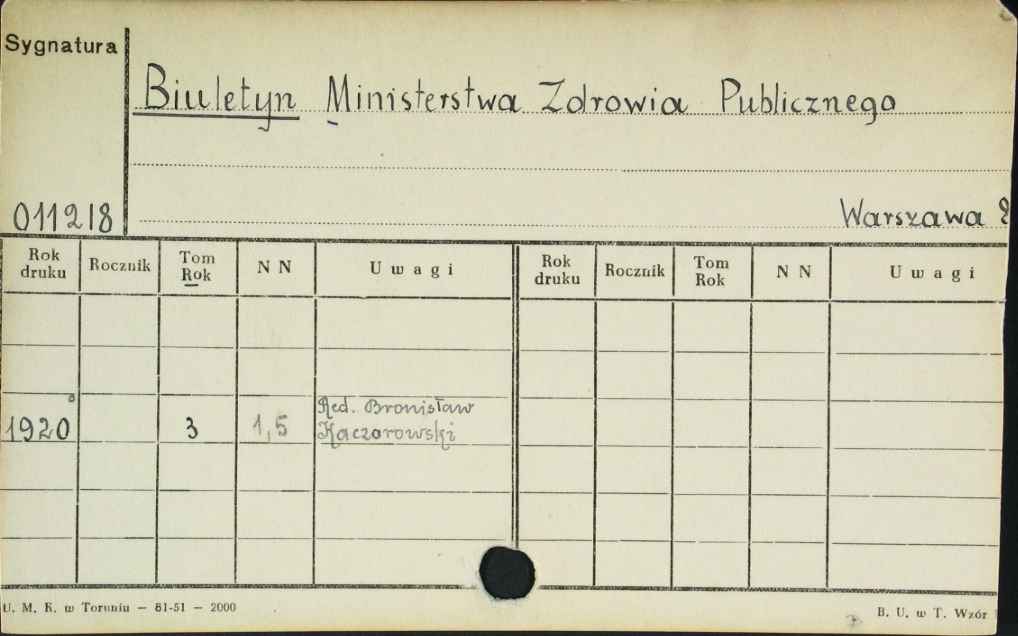 Sygnatura
Biuletyn Ministerstwa Zdrowia Publicznego
011218
Warszawa
Rok druku Rocznik Tom Rok N N Uwagi Rok druku Rocznik Tom Rok N N Uwagi
Red. Bronisław
1920 3 1,5 Kaczorowski
U. M. K. w Toruniu — 61-51 — 2000
B. U. w T. Wzór